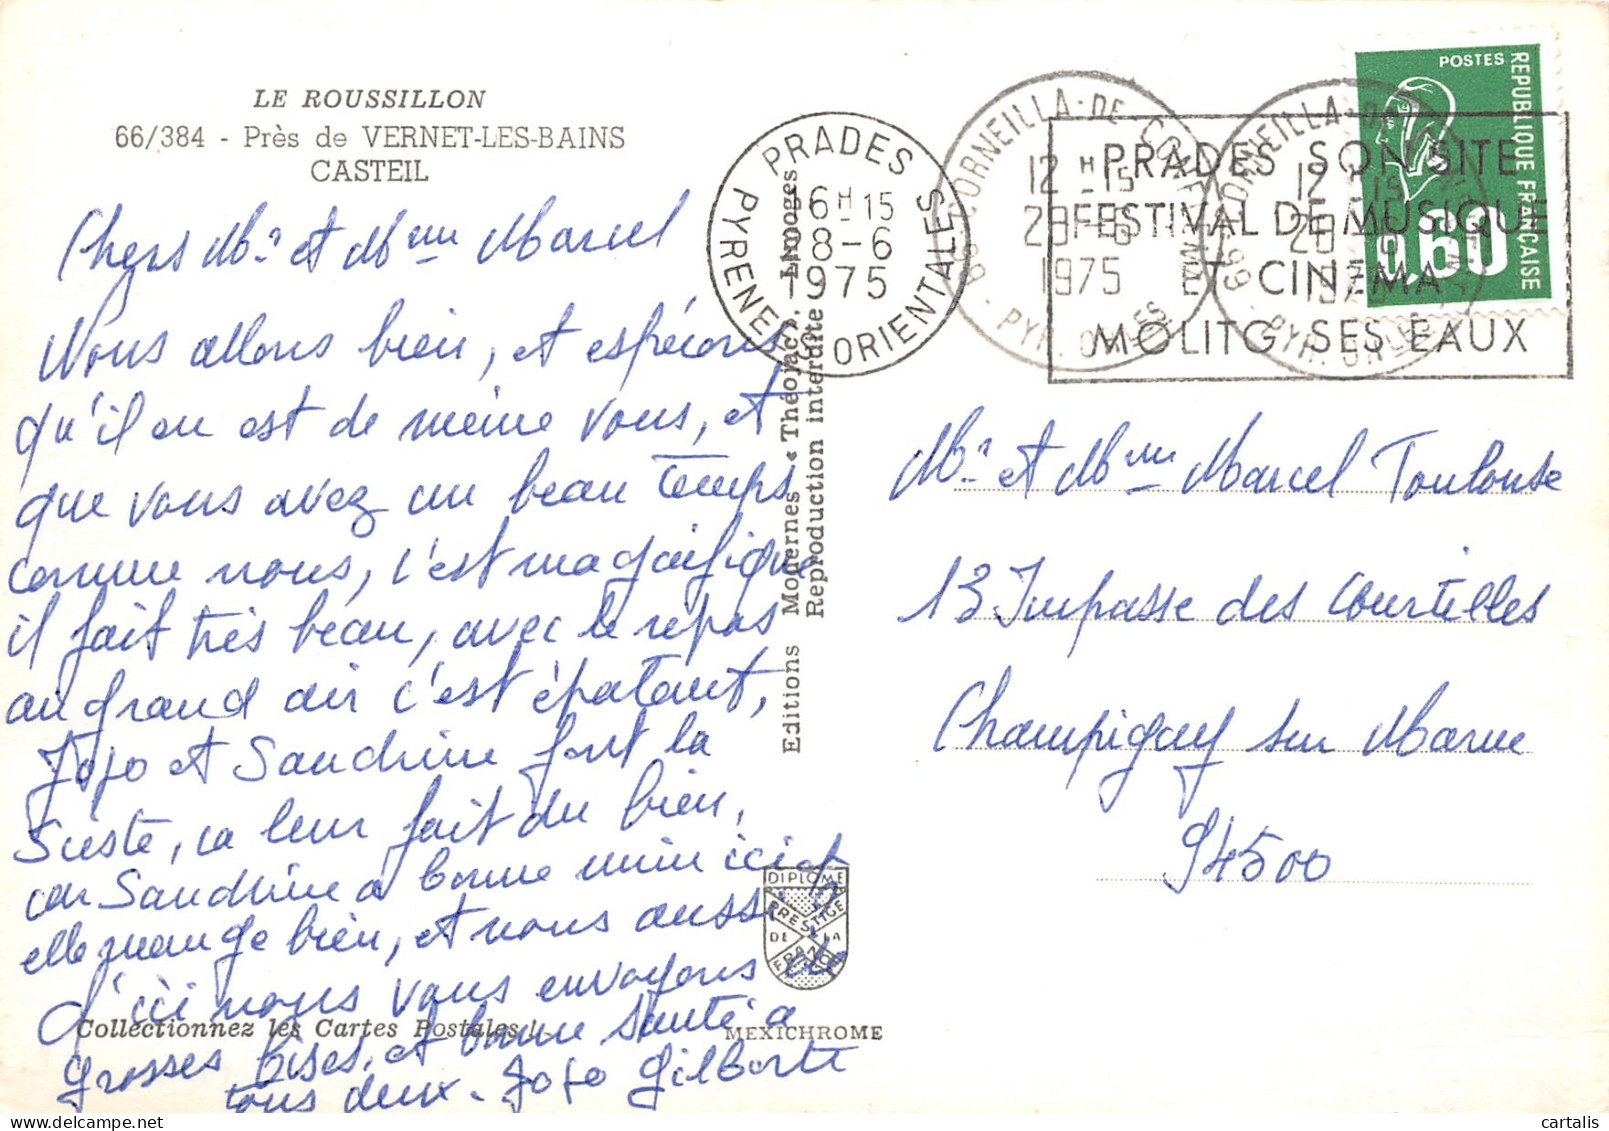 LE ROUSSILLON
66/384 - Près de VERNET-LES-BAINS
CASTEIL
Chers Mr et Mme Marcel
Nous allons bien, et espérons
qu'il en est de même vous, et
que vous avez un beau temps
comme nous, c'est magnifique
il fait très beau, avec le repas
au grand air c'est épatant,
Jojo et Sandrine font la
Sieste, ça leur fait du bien,
car Sandrine a bonne mine ici et
elle mange bien, et nous aussi
d'ici nous vous envoyons
grosses bises, et bonne santé a
tous deux. Jojo Gilberte
Collectionnez les Cartes Postales !
MEXICHROME
DIPLOME
PRESTIGE
DE LA
FRANCE
Editions Modernes « Théojac », Limoges
Reproduction interdite
PRADES
16H15
28-6
1975
PYRENEES ORIENTALES
CORNEILLA-DE-CONFLENT
12H15
28-6
1975
66 - PYR. ORLES
CORNEILLA-DE
12 15
28
1975
66 - PYR. ORLES
PRADES SON SITE
FESTIVAL DE MUSIQUE
ET CINEMA
MOLITG SES EAUX
POSTES
REPUBLIQUE FRANCAISE
0.60
Mr et Mme Marcel Toulouse
13 Impasse des Courtilles
Champigny sur Marne
94500
cartalis